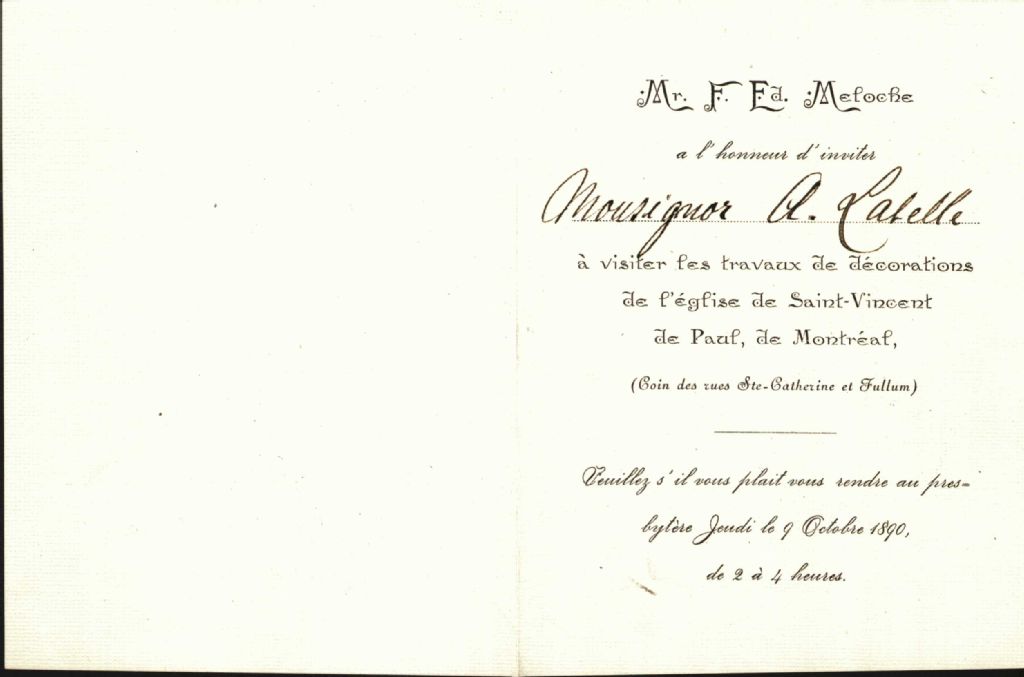 Mr. F. Ed. Meloche
a l'honneur d'inviter
Monsignor A. Labelle
à visiter les travaux de décorations
de l'église de Saint-Vincent
de Paul, de Montréal,
(Coin des rues Ste-Catherine et Fullum)
Veuillez s'il vous plait vous rendre au pres-
bytère Jeudi le 9 Octobre 1890,
de 2 à 4 heures.